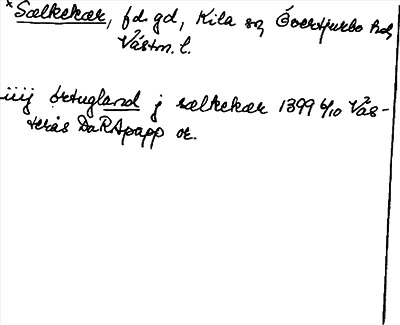 *Sælkekær, fd. gd, Kila sn, Övertjurbo hd,
Västm. l.
iiij örtugland j sælkekær 1399 6/10 Väs-
terås DaRApapp or.